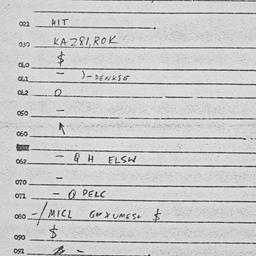 021 HIT
030 KAZ81,ROK
040 $
041 - )-DENKSE
042 O
050 -
060
062 - Q H ELSW
070 -
071 - Q PELC
080 -/MICL GMXUMES+ $
090 $
091 -